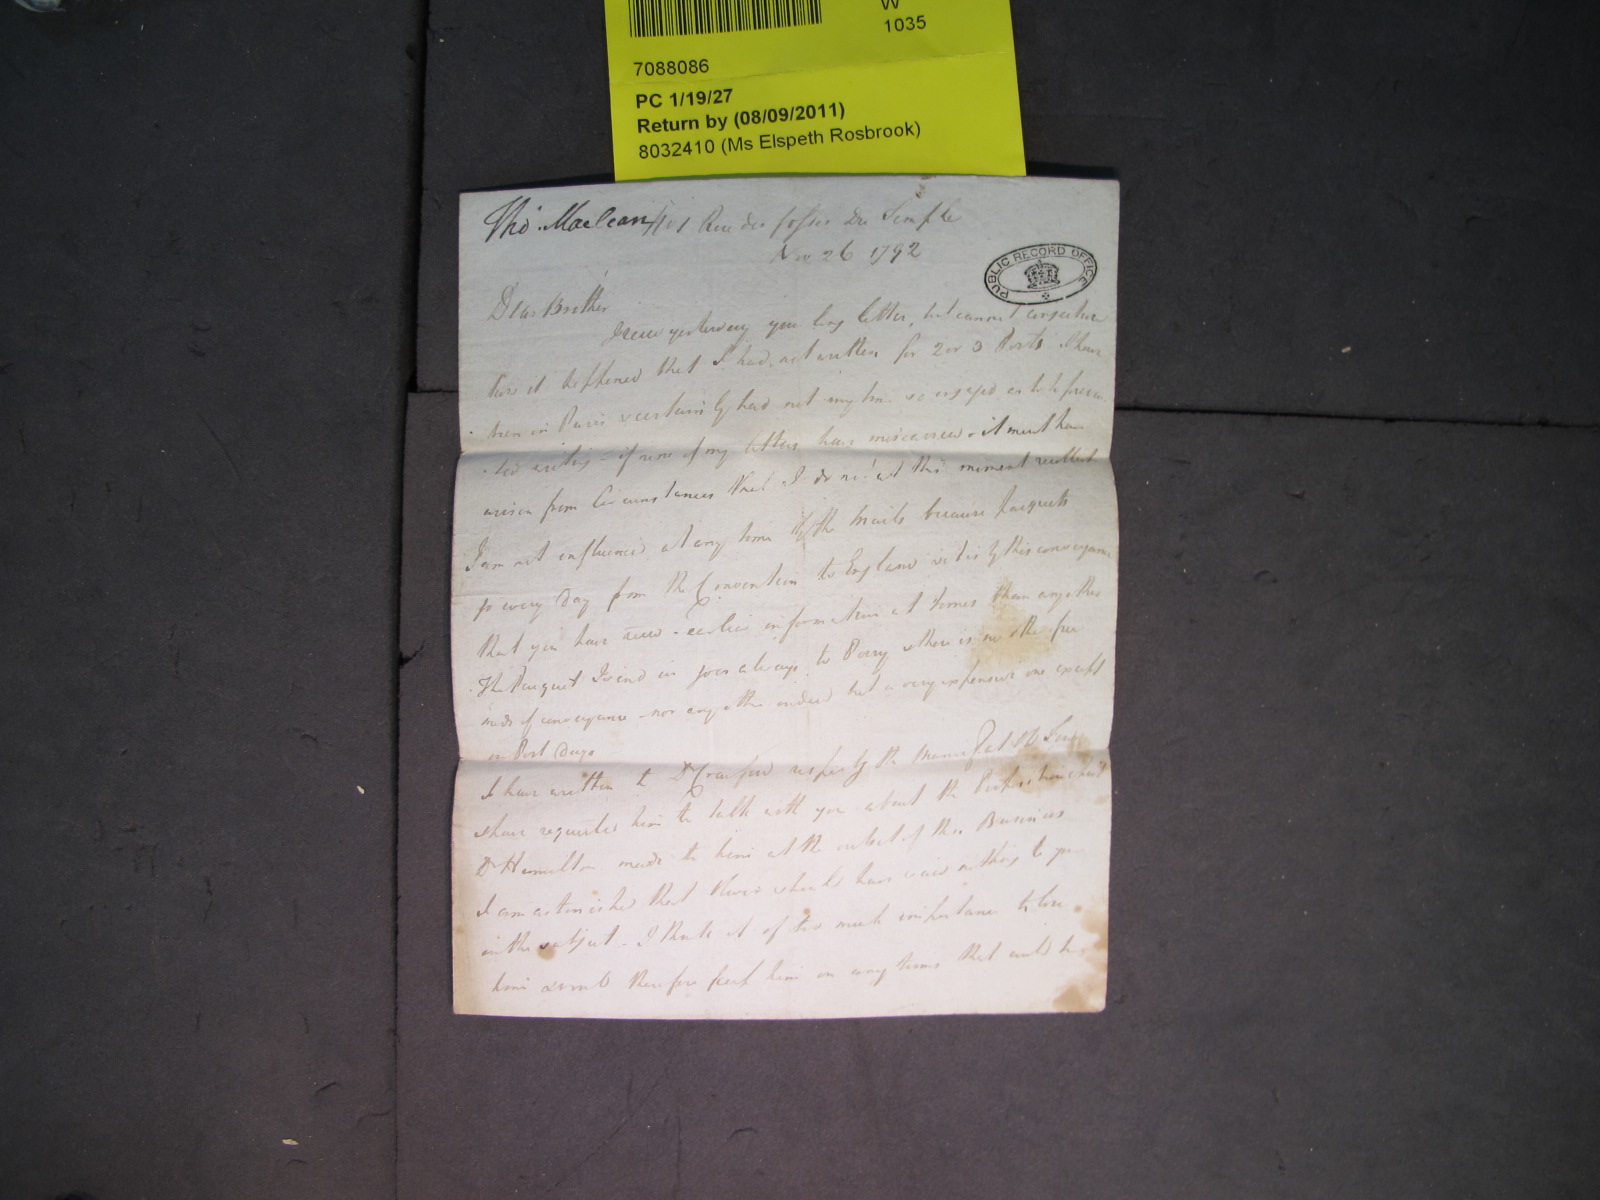 W
1035
7088086
PC 1/19/27
Return by (08/09/2011)
8032410 (Ms Elspeth Rosbrook)
Tho. Maclean No 1 Rue des fosses du Temple
Nov 26 1792
PUBLIC RECORD OFFICE
Dear Brother
yesterday your long letter, but cannot conjecture
how it happened that I had not written for 2 or 3 Posts I have
been in Paris & certainly had not my time so engaged as to be preven
ted writing - if none of my letters have miscarried - it must have
arisen from Circumstances that I do not at this moment recollect
I am not influenced at any time by the Mails because Pacquets
go every Day from the Convention to England & it is by this conveyance
that you have recd earlier information at times than any other
The Pacquet I send in goes always to Perry & there is no other free
mode of conveyance - nor any other indeed but a very expensive one except
on Post Days
I have written to Dr Crawford respecting the
& have requested him to talk with you about the
Dr Hamilton made to him at the outset of this Business
I am astonished that should have said nothing to you
on the subject - I think it of too much importance to lose
him & would therefore him on any terms that could be